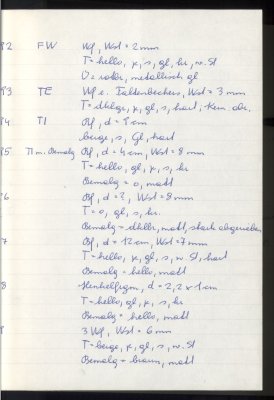 92 FW Wf, Wst = 2mm
T = hello, k, s, gl, hr, w. St
Ü = rotbr, metallisch gl
93 TE Wf e. Faltenbechers, Wst = 3 mm
T = dklge, k, gl, s, hart, Kern
94 TI Bf, d = 9 cm
beige, s, Gl, hart
95 TI m. Bemalg Bf, d = 4 cm, Wst = 8 mm
T = hello, gl, k, s, hr
Bemalg = o, matt
6 Bf, d = ?, Wst = 8 mm
T = o, gl, s, hr.
Bemalg = dkllbr, matt, stark abgerieben
7 Bf, d = 12 cm, Wst = 7 mm
T = hello, k, gl, s, w St, hart
Bemalg = hello, matt
8 Henkelfrgm, d = 2,2 x 1 cm
T = hello, gl, k, s, hr
Bemalg = hello, matt
3 Wf, Wst = 6 mm
T = beige, k, gl, s, w. St
Bemalg = braun, matt